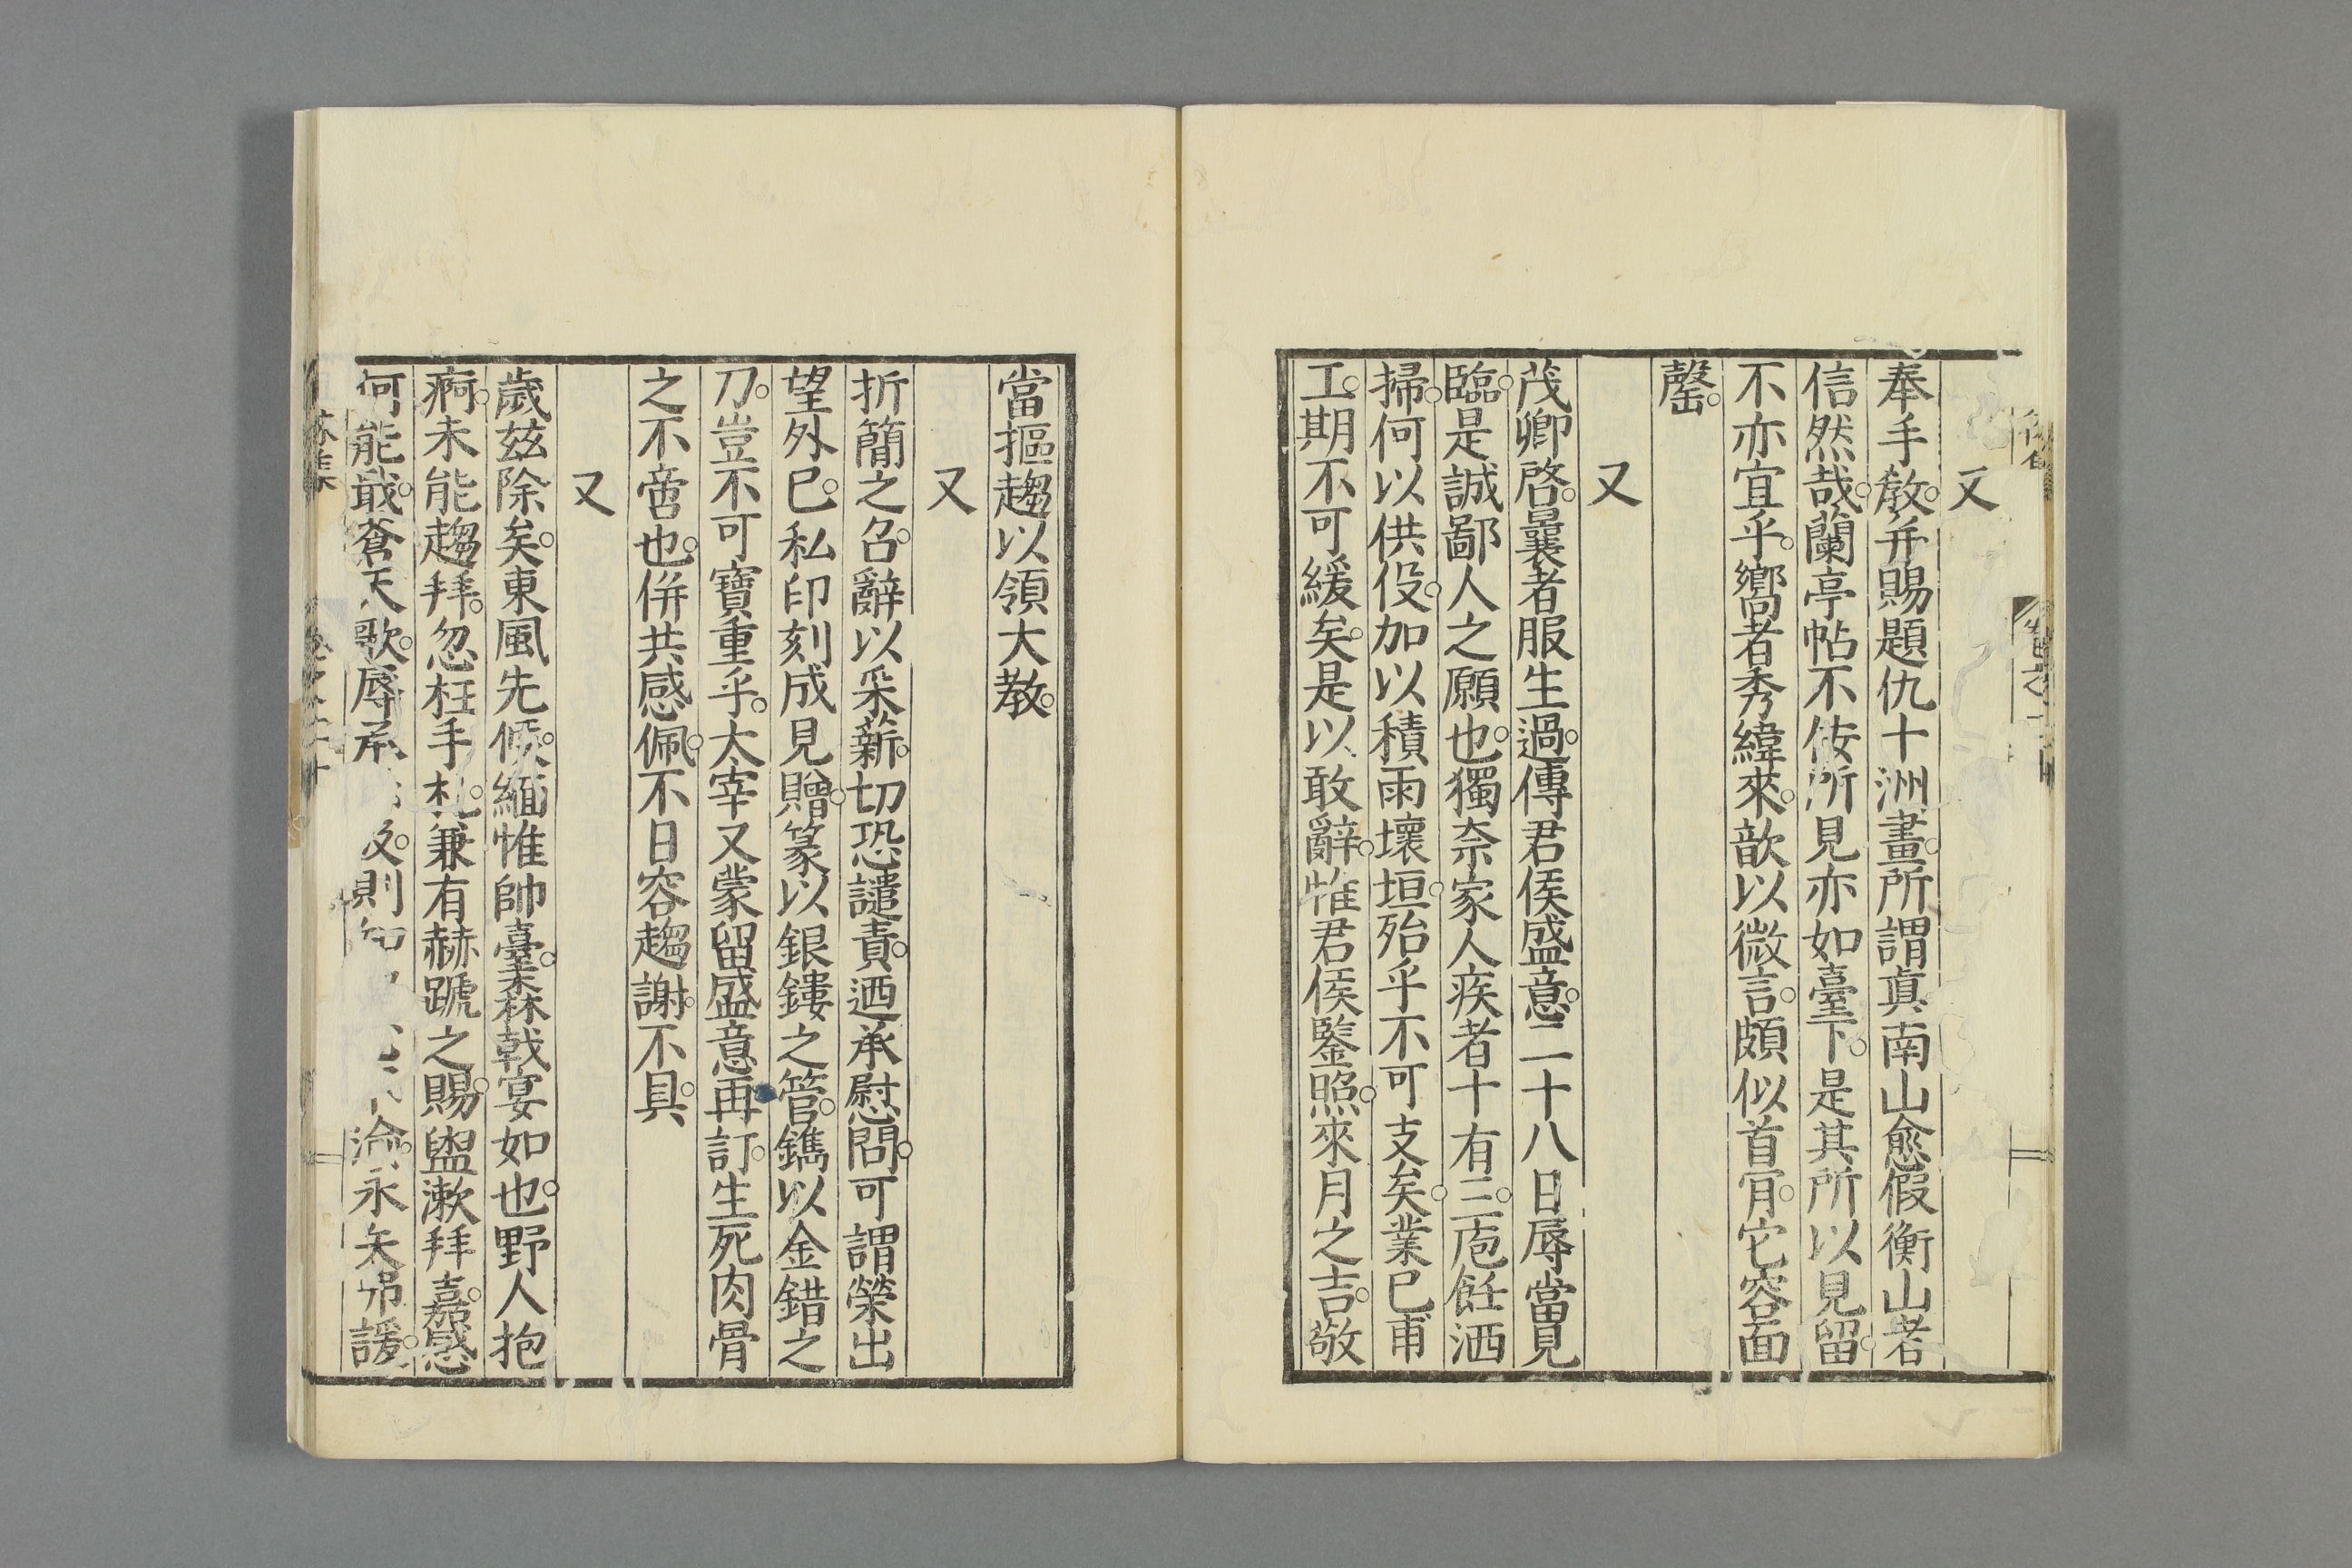 又
奉手教。并賜題仇十洲畫。所謂眞南山愈假衡山者
信然哉。蘭亭帖不佞所見亦如臺下。是其所以見留。
不亦宜乎。嚮者秀緯來。歆以微言。頗似首肎。它容面
罄。
又
茂卿啓。曩者服生過。傳君侯盛意。二十八日辱當見
臨。是誠鄙人之願也。獨奈家人疾者十有三。庖飪洒
掃。何以供役。加以積雨壞垣。殆乎不可支矣。業已甫
工。期不可緩矣。是以敢辭。惟君侯鑒照。來月之吉。敬
當摳趨以領大教。
又
折簡之召。辭以采薪。切恐譴責。迺承慰問。可謂榮出
望外已。私印刻成見贈。篆以銀鏤之管。鐫以金錯之
刀。豈不可寶重乎。太宰又蒙留盛意再訂。生死肉骨
之不啻也。併共感佩。不日容趨謝。不具。
又
歲玆除矣。東風先候。緬惟帥臺。森戟宴如也。野人抱
痾。未能趨拜。忽枉手札。兼有赫蹏之賜。盥漱拜嘉。感
何能戢。蒼天歌。辱
則
永矢弗諼。